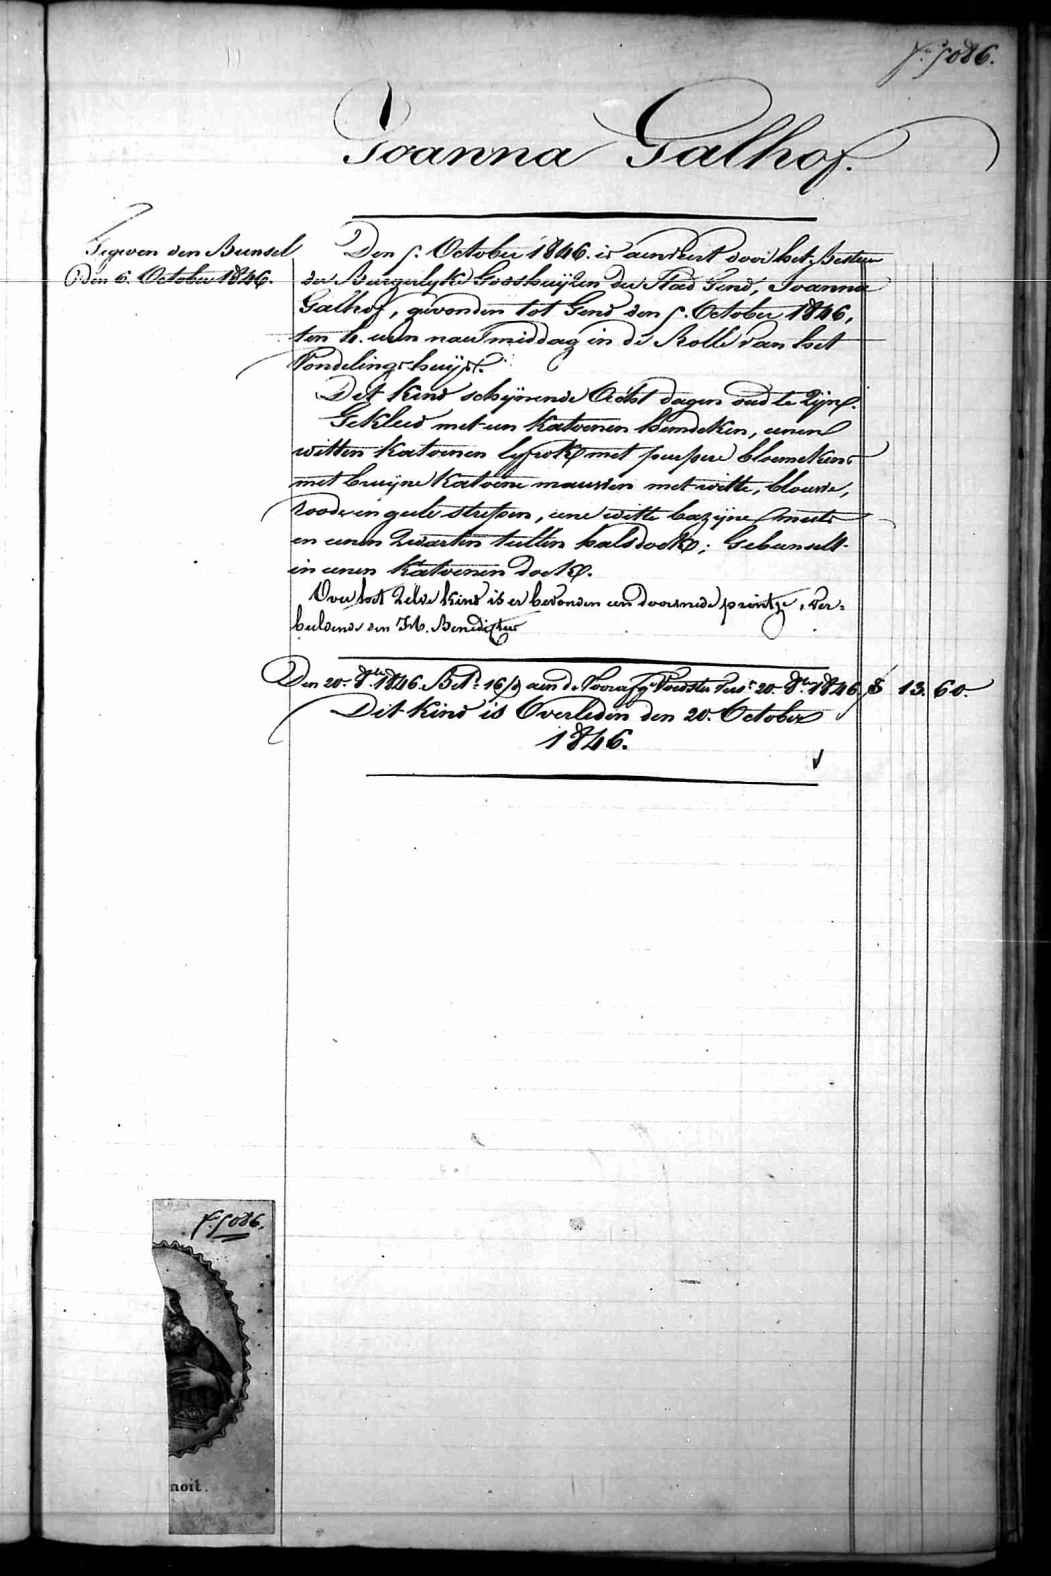 fo. 5086.
Joanna Galhof.
Gegeven den Bunsel
den 6. October 1846.
Den 5. October 1846. is aenveert door het Bestuer
der Burgerlyke Godshuijzen der Stad Gend, Joanna
Galhof, gevonden tot Gend den 5. October 1846,
ten h. uren naer middag in de Rolle van het
Vondelings huijs.
Dit kind schijnende Acht dagen oud te zijn.
Gekleed met een katoenen hemdeken, eenen
witten katoenen lyfrok met purpere bloemekens
met bruijne katoene mauwen met witte, blauwe,
roode en geele strepen, eene witte bazijne muts
en eenen zwarten tullen halsdoek; Gebunselt
in eenen katoenen doek.
Over het zelve kind is er bevonden een doorsnede printje, ver-
beeldende den St. Benedictus
Den 20. 8bre 1846. Bet. 16/9 aen de Voorafge Voedster 20. 8bre 1846, 13. 60.
Dit kind is Overleden den 20. October
1846.
fo. 5086.
noit.